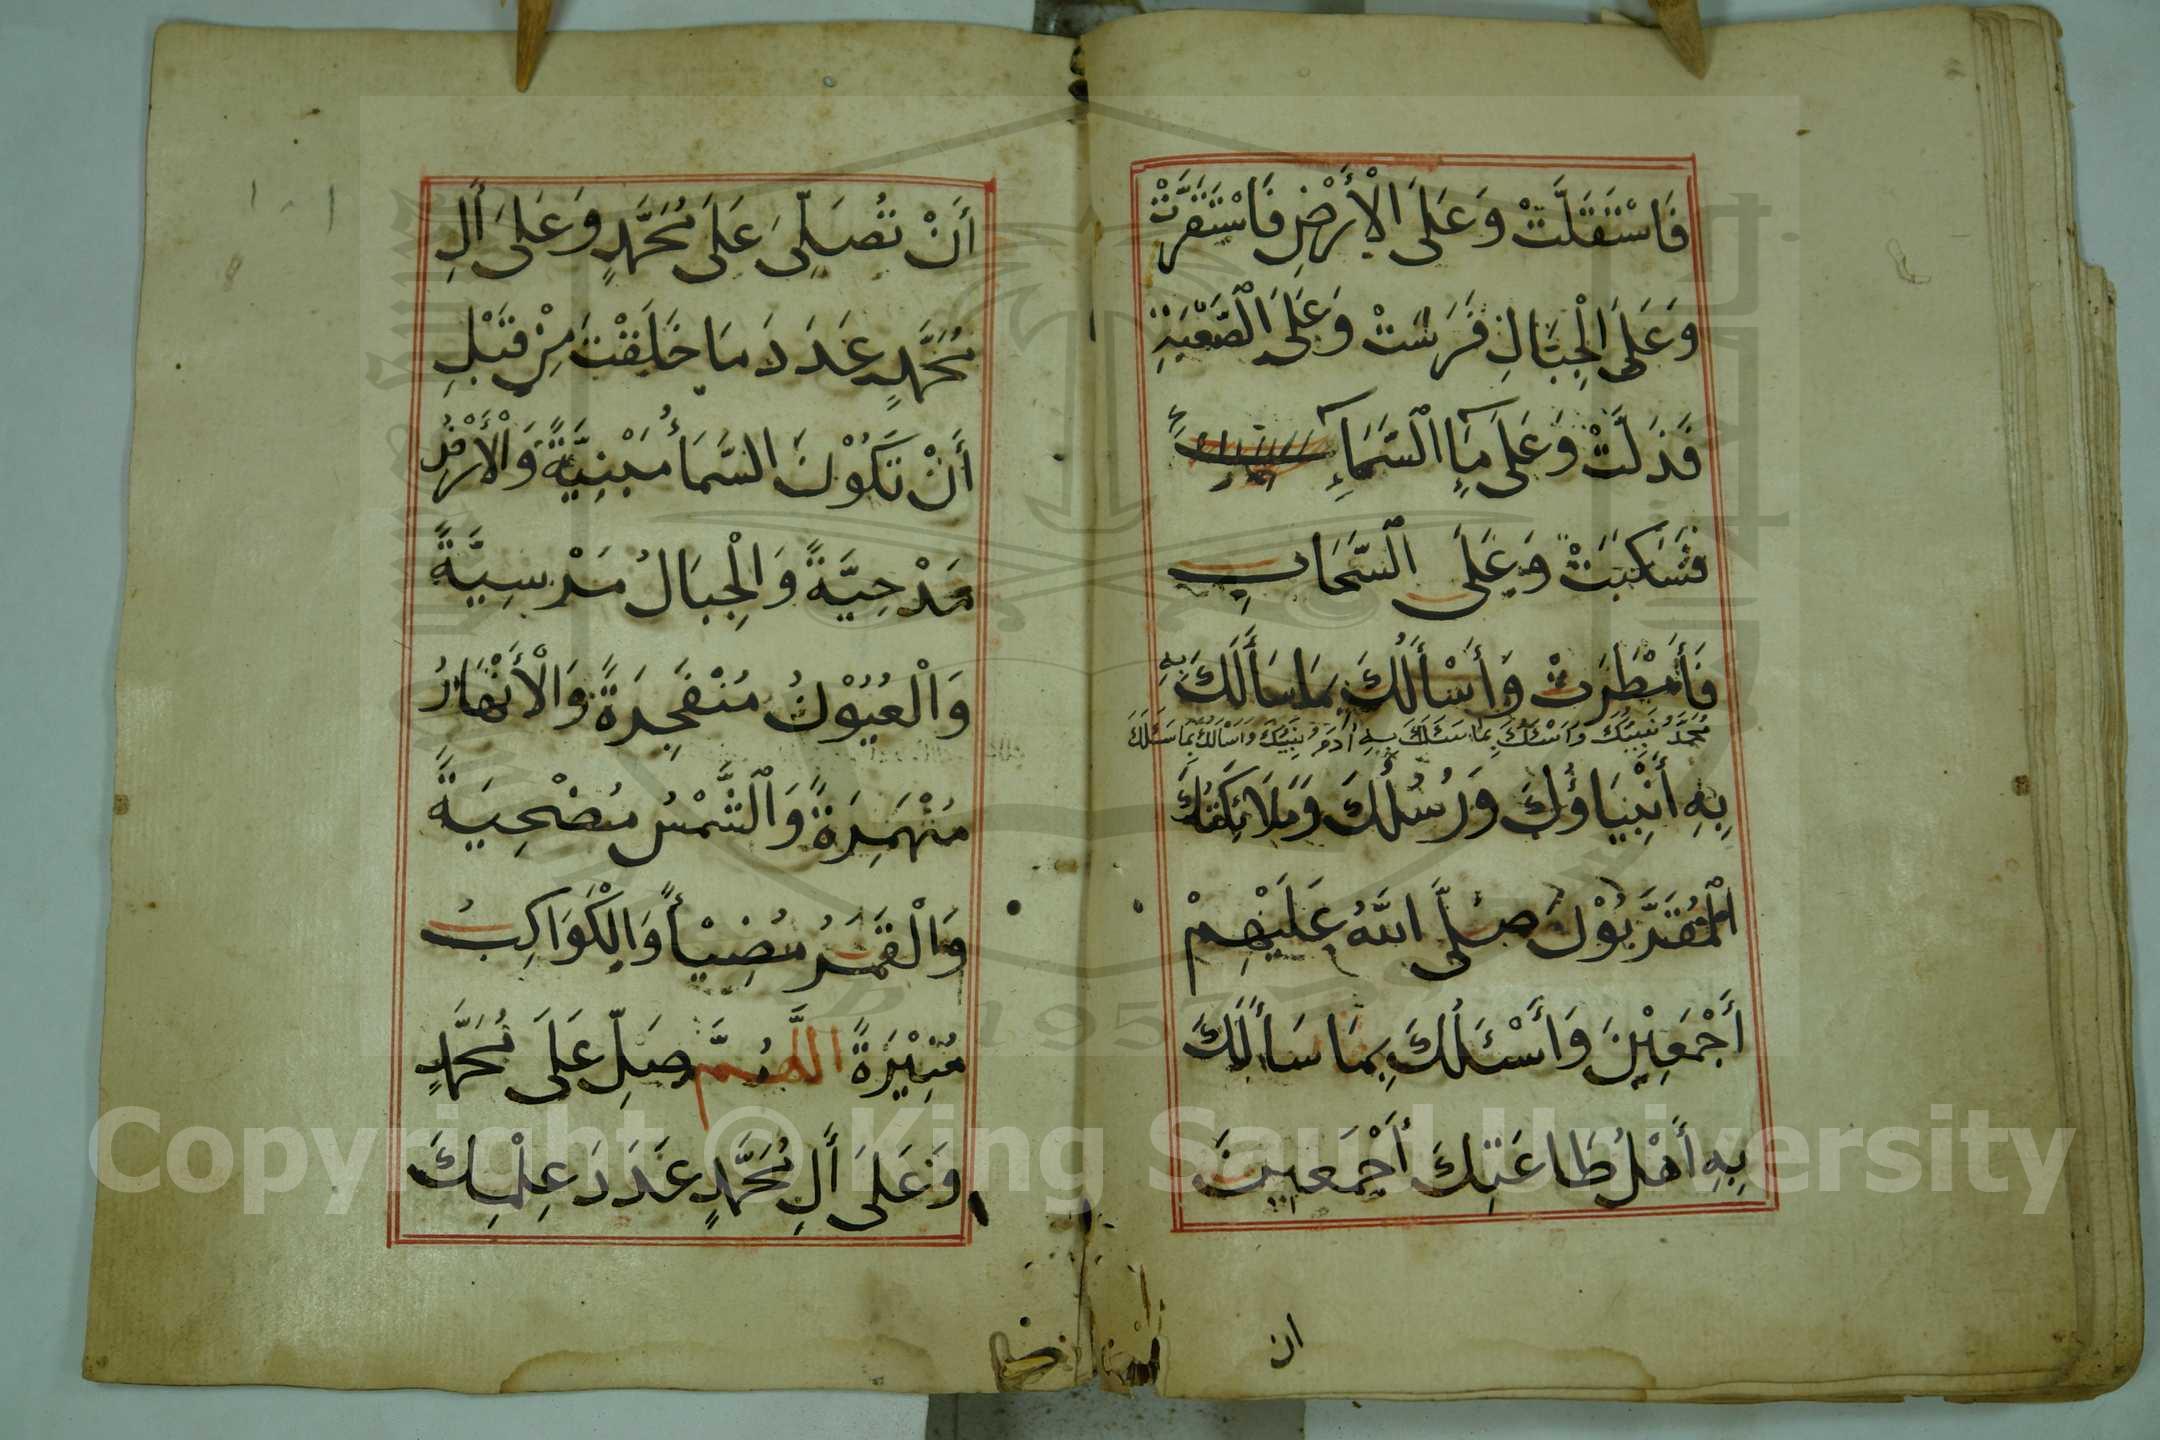 فَاسْتَقَلَّتْ وَعَلَى الْأَرْضِ فَاسْتَقَرَّتْ
وَعَلَى الْجِبَالِ فَرَسَتْ وَعَلَى الصَّعْبَةِ
فَذَلَّتْ وَعَلَى مَآءِ السَّمَآءِ
فَسَكَبَتْ وَعَلَى السَّحَابِ
فَأَمْطَرَتْ وَأَسْأَلُكَ بِمَا سَأَلَكَ بِهِ
مُحَمَّدٌ نَبِيُّكَ وَأَسْئَلُكَ بِمَا سَئَلَكَ بِهِ آدَمُ نَبِيُّكَ وَأَسْأَلُكَ بِمَا سَئَلَكَ
بِهِ أَنْبِيَاؤُكَ وَرُسُلُكَ وَمَلَائِكَتُكَ
الْمُقَرَّبُوْنَ صَلَّى اللهُ عَلَيْهِمْ
أَجْمَعِيْنَ وَأَسْئَلُكَ بِمَا سَأَلَكَ
بِهِ أَهْلُ طَاعَتِكَ أَجْمَعِينَ
ان
أَنْ تُصَلِّىَ عَلَى مُحَمَّدٍ وَعَلَى أَلِ
مُحَمَّدٍ عَدَدَ مَا خَلَقْتَ مِنْ قَبْلِ
أَنْ تَكُوْنَ السَّمَأُ مَبْنِيَّةً وَالْأَرْضُ
مَدْحِيَّةً وَالْجِبَالُ مَرْسِيَّةً
وَالْعُيُوْنُ مُنْفَجِرَةً وَالْأَنْهَارُ
مُنْهَمِرَةً وَالشَّمْسُ مُضْحِيَةً
وَالْقَمَرُ مُضِيْأً وَالْكَوَاكِبُ
مُنِيْرَةً اللَّهُمَّ صَلِّ عَلَى مُحَمَّدٍ
وَعَلَى أَلِ مُحَمَّدٍ عَدَدَ عِلْمِكَ
1957
Copyright © King Saud University